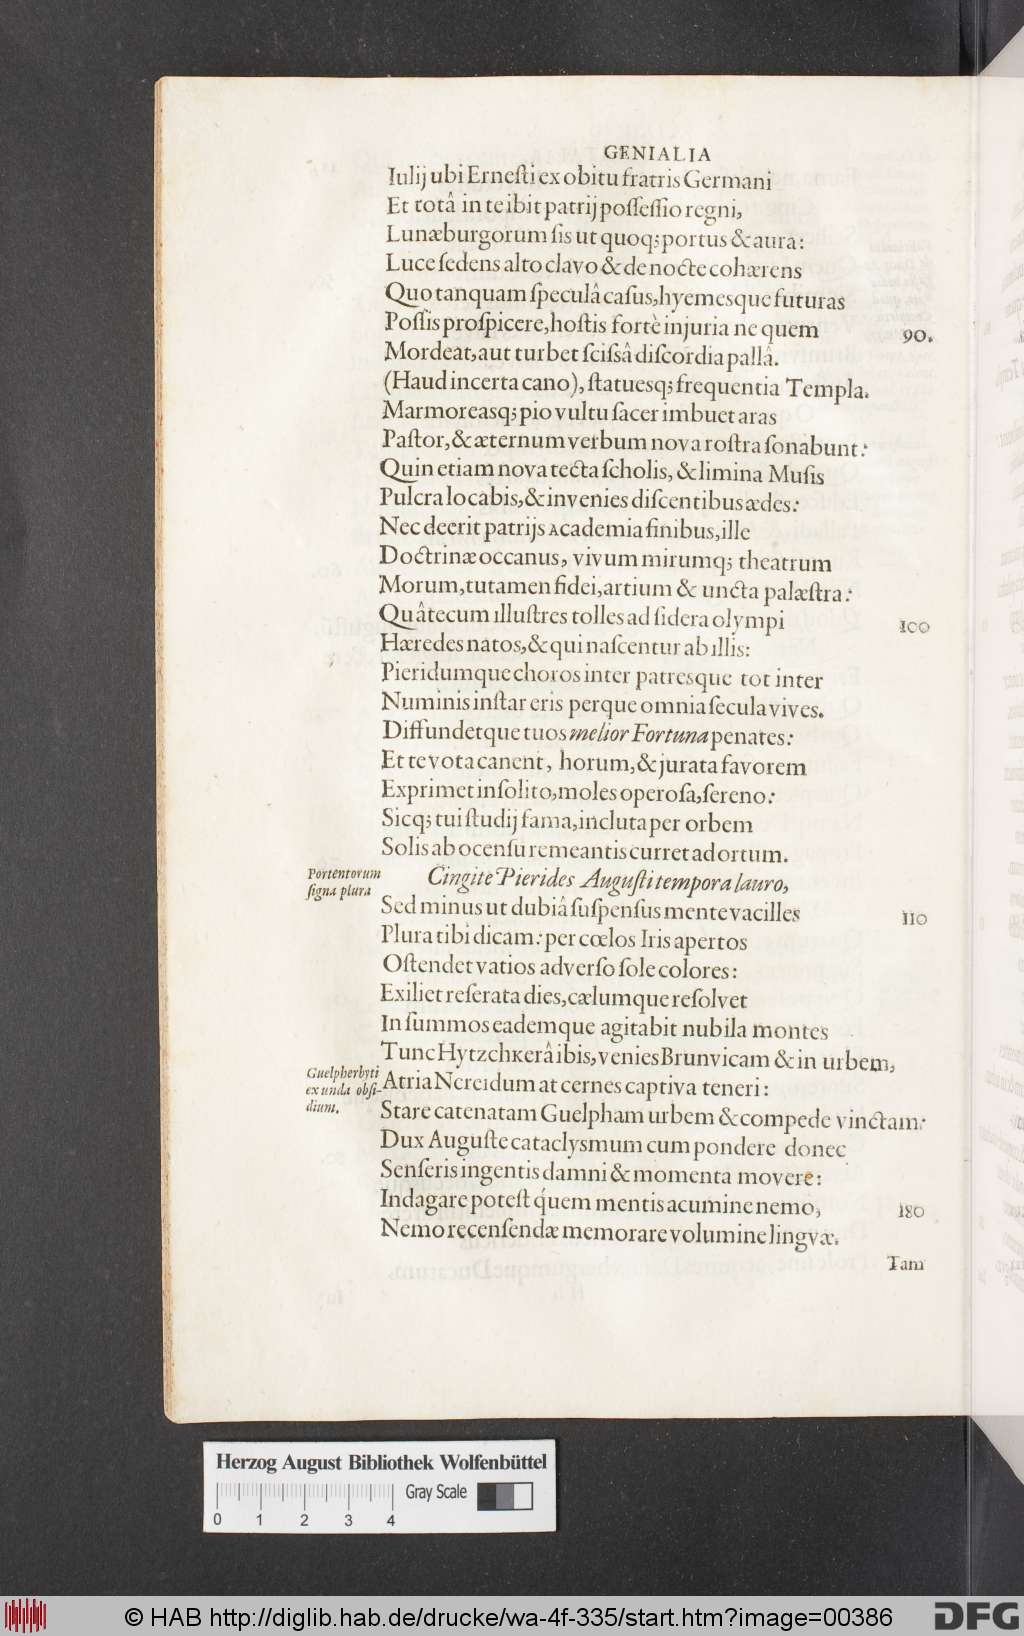 GENIALIA
Iulij ubi Erneſti ex obitu fratris Germani
Et totâ in te ibit patrij poſſeſſio regni,
Lunæburgorum ſis ut quoq; portus & aura:
Luce ſedens alto clavo & de nocte cohærens
Quo tanquam ſpeculâ caſus, hyemesque futuras
Poſſis proſpicere, hoſtis fortè injuria ne quem
90.
Mordeat, aut turbet ſciſsâ diſcordia pallâ.
(Haud incerta cano), ſtatuesq; frequentia Templa.
Marmoreasq; pio vultu ſacer imbuet aras
Paſtor, & æternum verbum nova roſtra ſonabunt:
Quin etiam nova tecta ſcholis, & limina Muſis
Pulcra locabis, & invenies diſcentibus ædes:
Nec deerit patrijs Academia finibus, ille
Doctrinæ occanus, vivum mirumq; theatrum
Morum, tutamen fidei, artium & uncta palæſtra:
Quâ tecum illuſtres tolles ad ſidera olympi
100
Hæredes natos, & qui naſcentur ab illis:
Pieridumque choros inter patresque tot inter
Numinis inſtar eris perque omnia ſecula vives.
Diffundetque tuos melior Fortuna penates:
Et te vota canent, horum, & jurata favorem
Exprimet inſolito, moles operoſa, ſereno:
Sicq; tui ſtudij fama, incluta per orbem
Solis ab ocenſu remeantis curret ad ortum.
Portentorum
ſigna plura
Cingite Pierides Auguſti tempora lauro,
Sed minus ut dubiâ ſuſpenſus mente vacilles
110
Plura tibi dicam: per cœlos Iris apertos
Oſtendet vatios adverſo ſole colores:
Exiliet reſerata dies, cælumque reſolvet
In ſummos eademque agitabit nubila montes
Tunc Hytzchkerâ ibis, venies Brunvicam & in urbem,
Guelpherbyti
ex unda obſi-
dium.
Atria Nereidum at cernes captiva teneri:
Stare catenatam Guelpham urbem & compede vinctam:
Dux Auguſte cataclysmum cum pondere donec
Senſeris ingentis damni & momenta movere:
Indagare poteſt quem mentis acumine nemo,
180
Nemo recenſendæ memorare volumine lingvæ.
Tam
Herzog August Bibliothek Wolfenbüttel
Gray Scale
0 1 2 3 4
© HAB http://diglib.hab.de/drucke/wa-4f-335/start.htm?image=00386
DFG